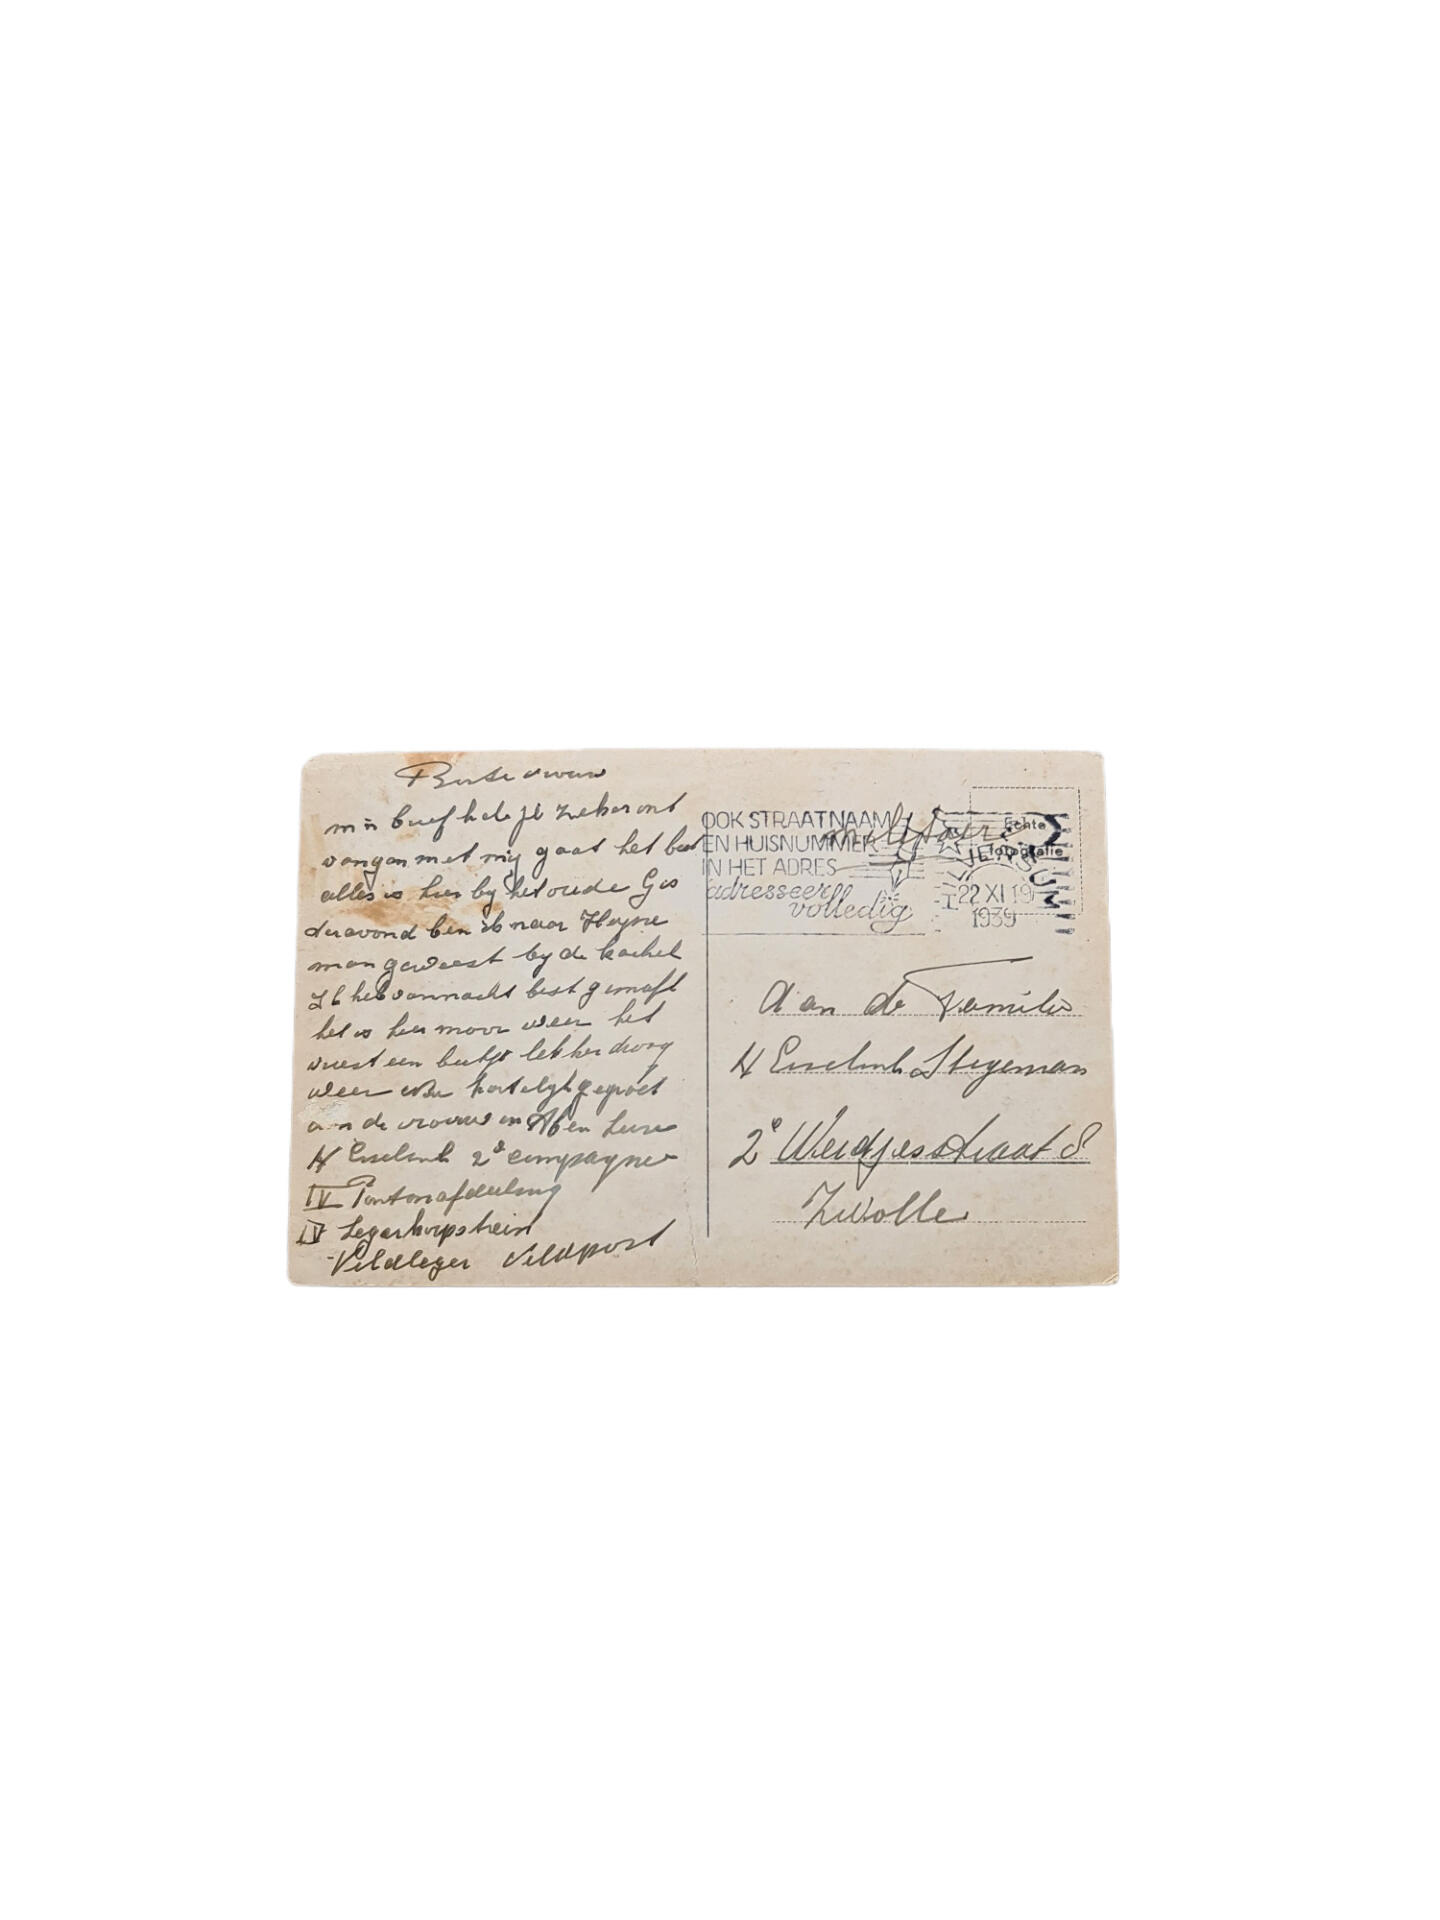 Beste vrouw
mijn brief heb je zeker ont
vangen met mij gaat het best
alles is hier bij het oude Gis
deravond ben ik naar Heyne
man geweest bij de kachel
Ik heb vannacht best gemaft
het is hier mooi weer het
vriest een beetje lekker droog
weer nou hartelijk gegroet
aan de vrouw en
H Esselink 2e compagnie
IV Pontonafdeling
IV Legerkorpstrein
Veldleger Veldpost
OOK STRAATNAAM
EN HUISNUMMER
IN HET ADRES
adresseer
volledig
militaire
Echte
fotografie
HILVERSUM
22 XI 19
1939
Aan de Familie
H Esselink Stegeman
2e Weidjesstraat 8
Zwolle